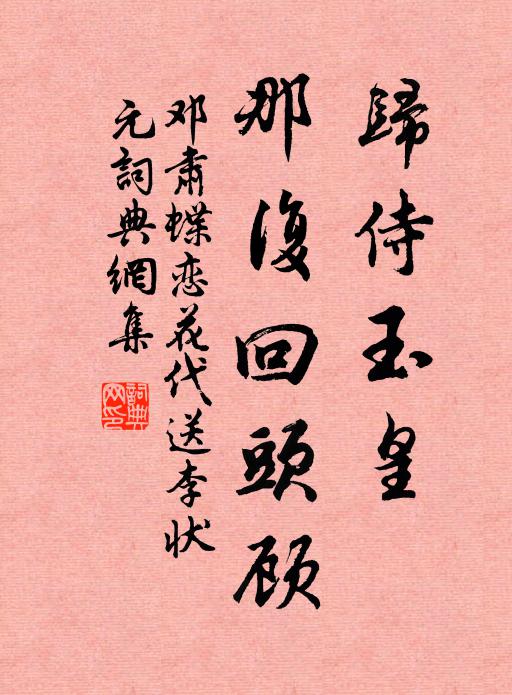 歸侍玉皇
那復回頭顧
邓肅蝶恋花代送李状
元詞典網集
詞典网印